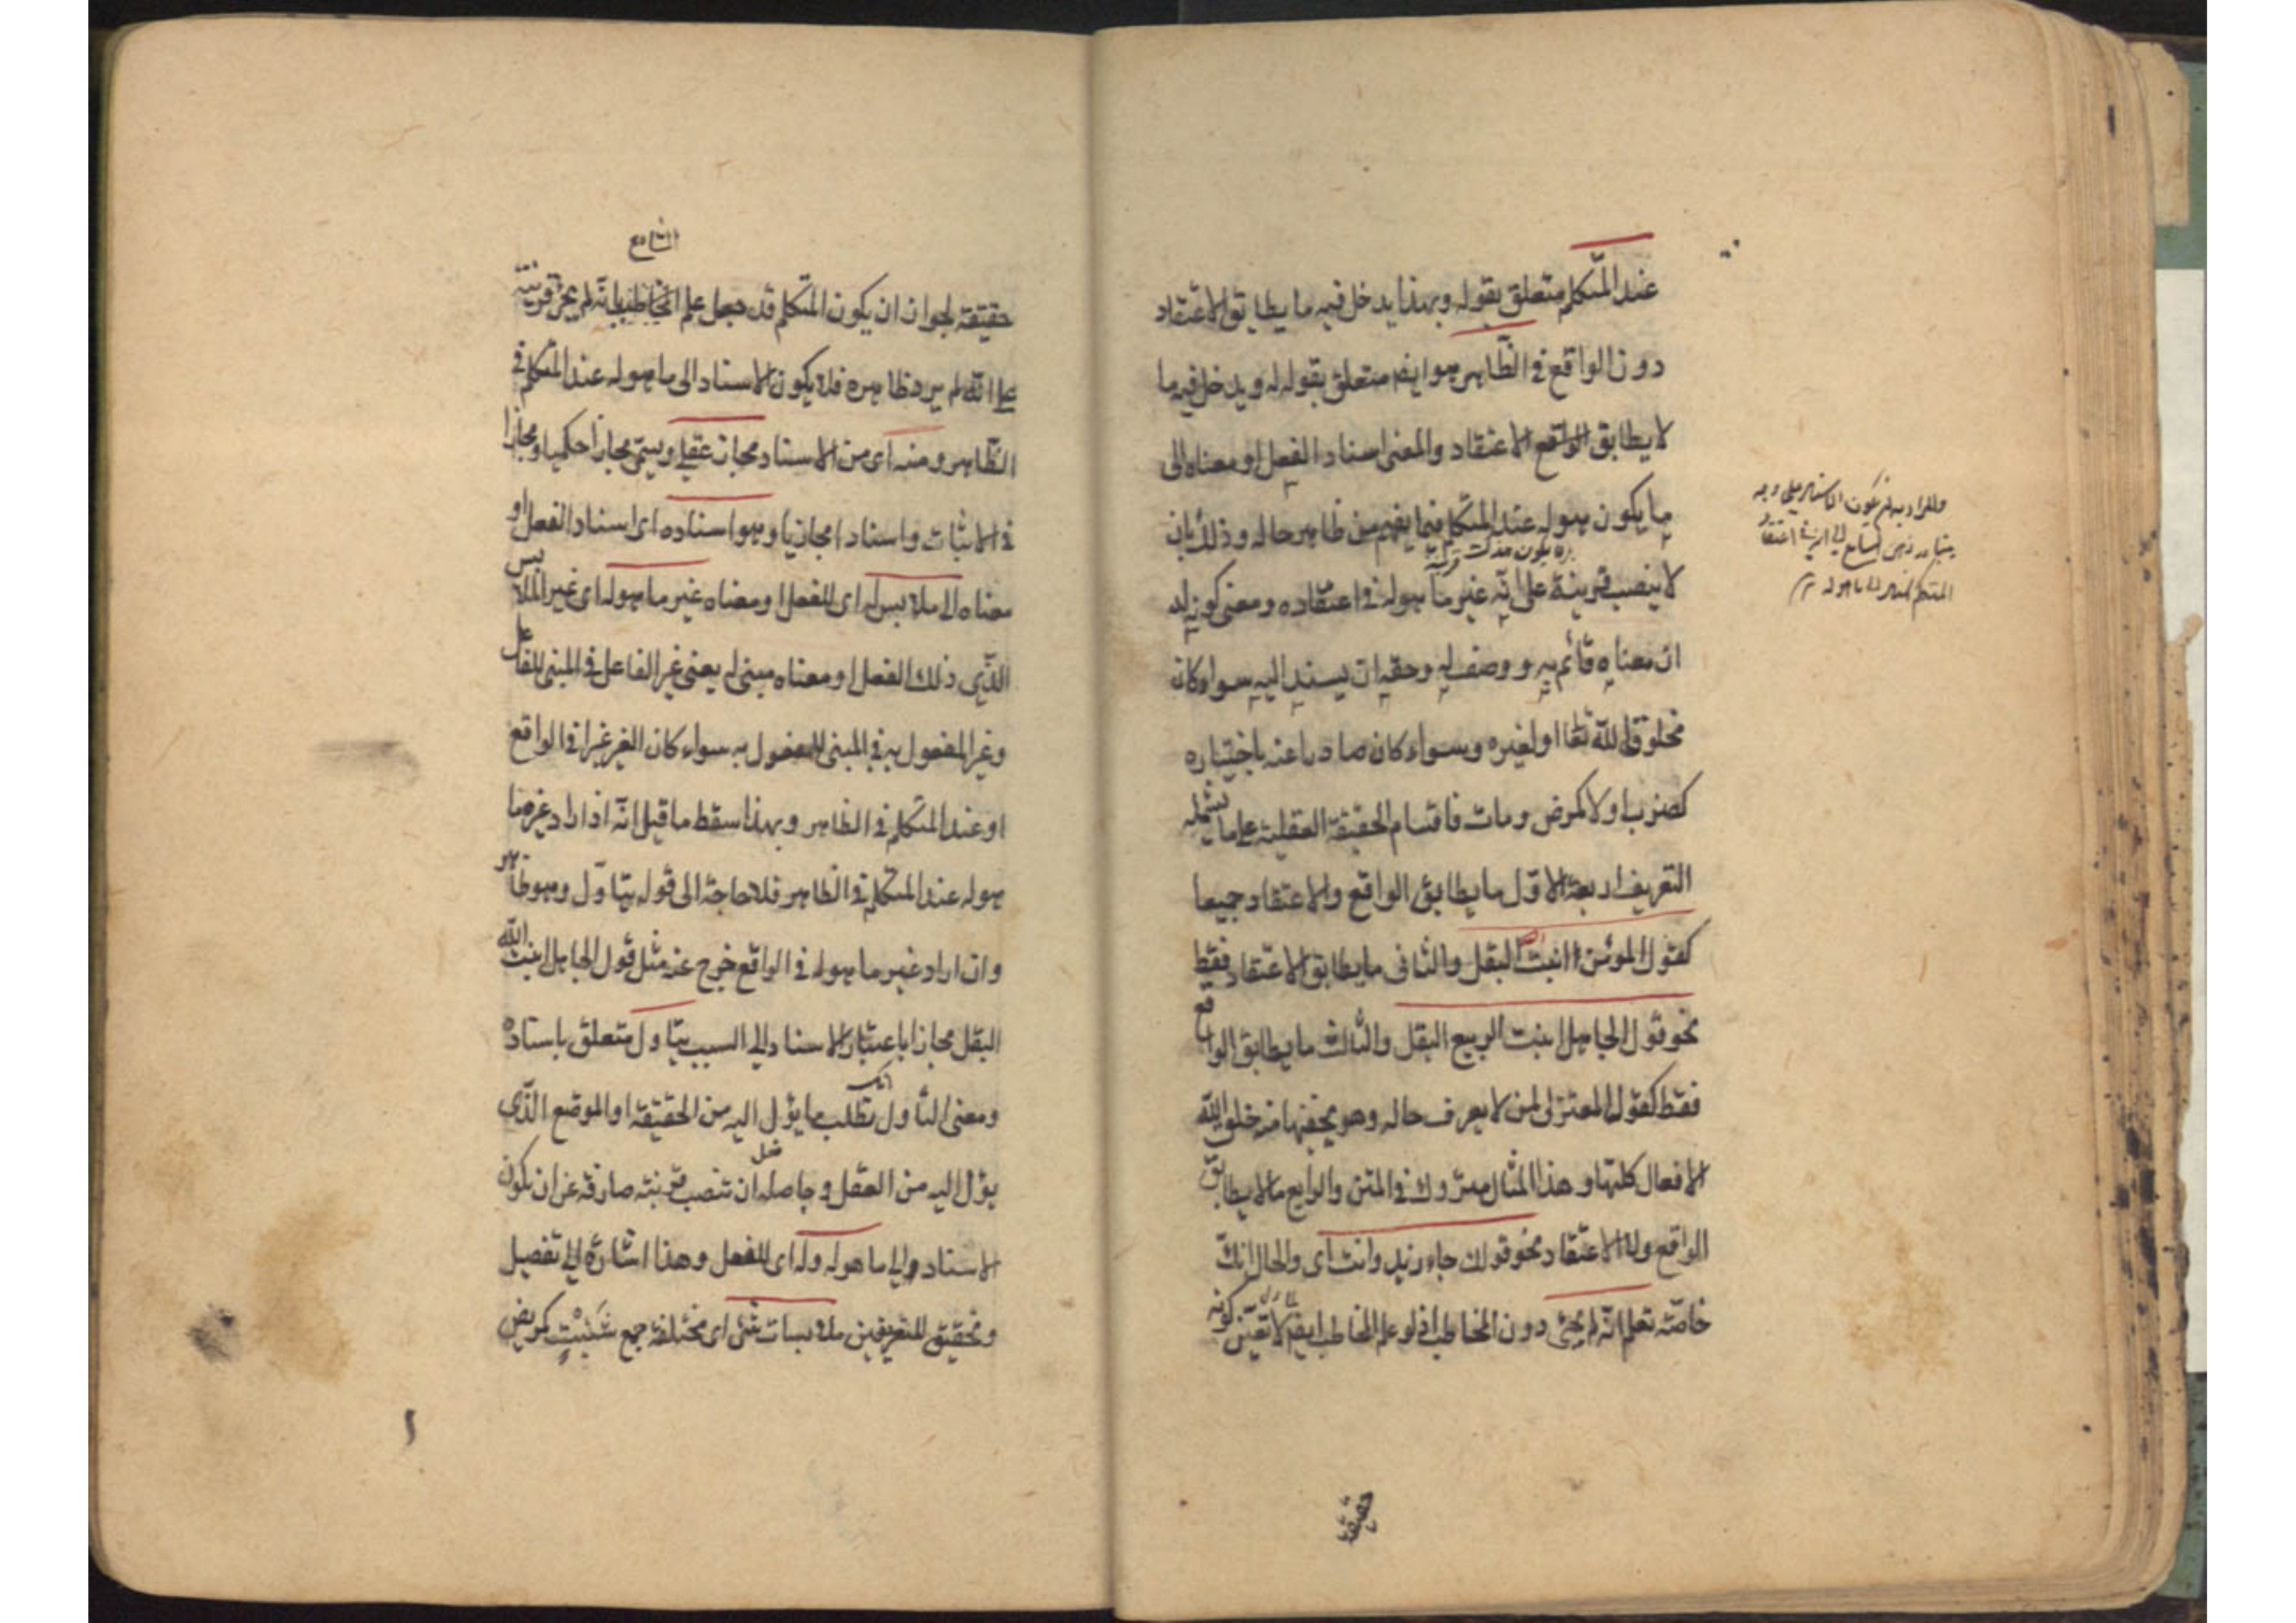 عند المتكلم متعلق بقوله وبهذا يدخل فيه ما يطابق الاعتقاد
دون الواقع في الظاهر هو ايضا متعلق بقوله له ويدخل فيه ما
لا يطابق الواقع الاعتقاد والمعنى اسناد الفعل او معناه الى
ما يكون هو له عند المتكلم فيما يفهم من ظاهر حاله وذلك بان
لا ينصب قرينة على انه غير ما هو له في اعتقاده ومعنى كونه له
ان معناه قائم به ووصف له وحقه ان يسند اليه سواء كان
مخلوقا لله تعا او لغيره وسواء كان صادرا عنه باختياره
كضرب او لا كمرض ومات فاقسام الحقيقة العقلية على ما يشمله
التعريف اربعة الاول ما يطابق الواقع والاعتقاد جميعا
كقول المؤمن انبت الله البقل والثاني ما يطابق الاعتقاد فقط
نحو قول الجاهل انبت الربيع البقل والثالث ما يطابق الواقع
فقط كقول المعتزلي لمن لا يعرف حاله وهو يخفيها منه خلق الله
الافعال كلها وهذا المثال متروك في المتن والرابع ما لا يطابق
الواقع ولا الاعتقاد نحو قولك جاء زيد وانت اى والحال انك
خاصة تعلم انه لم يجئ دون المخاطب اذ لو علم المخاطب ايضا لا تعين كونه
والمراد به ان يكون الاسناد على وجه
يتبادر ذهن السامع الى ان في اعتقاد
المتكلم اسناد الى ما هو له
حقيقة
حقيقة لجواز ان يكون المتكلم قد جعل علم المخاطب بانه لم يجئ قرينة
على انه لم يرد ظاهره فلا يكون الاسناد الى ما هو له عند المتكلم في
الظاهر ومنه اى من الاسناد مجاز عقلي ويسمى مجازا حكميا ومجازا
في الاثبات واسنادا مجازيا وهو اسناده اى اسناد الفعل او
معناه الى ملابس له اى للفعل او معناه غير ما هو له اى غير الملابس
الذي ذلك الفعل او معناه مبنى له يعنى غير الفاعل في المبنى للفاعل
وغير المفعول به في المبنى للمفعول به سواء كان الغير غيرا في الواقع
او عند المتكلم في الظاهر وبهذا سقط ما قيل انه اذ اراد غير ما
هو له عند المتكلم في الظاهر فلا حاجة الى قوله بتأول وهو ظاهر
وان اراد غير ما هو له في الواقع خرج عنه مثل قول الجاهل انبت الله
البقل مجازا باعتبار الاسناد الى السبب بتأول متعلق باسناده
ومعنى التأول تطلب ما يؤل اليه من الحقيقة او الموضع الذي
يؤل اليه من العقل وحاصله ان تنصب قرينة صارفة عن ان يكون
الاسناد الى ما هو له وله اى للفعل وهذا اشارة الى تفصيل
وتحقيق للتعريفين ملابسات شتى اى مختلفة جمع شتيت كمريض